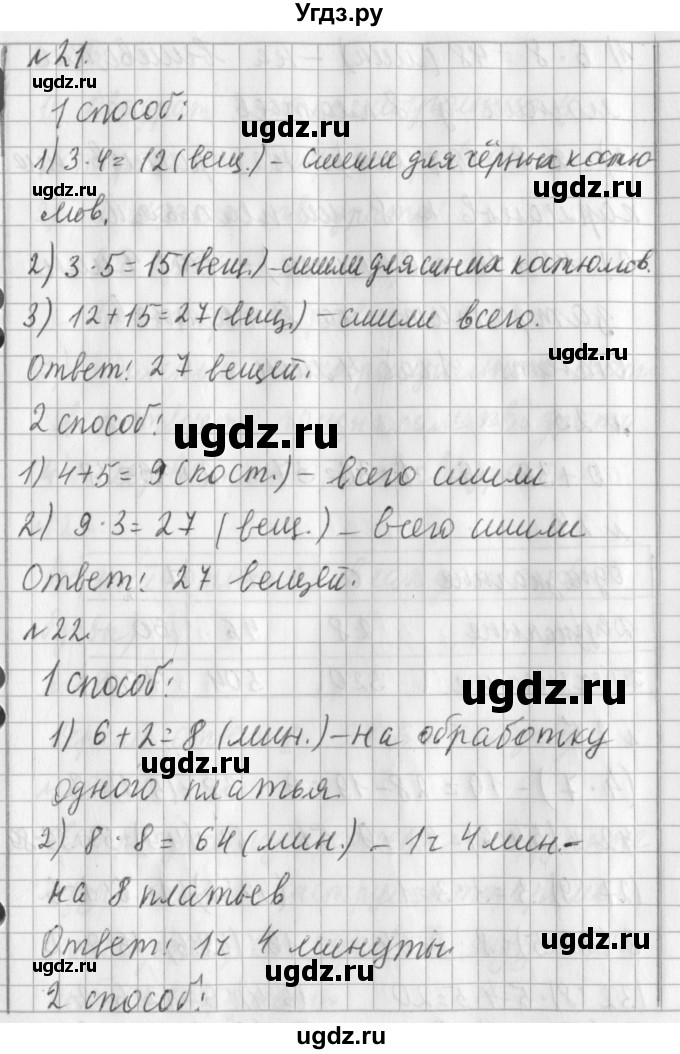 Угдз.ру
№21.
ugdz.ru
1 способ:
ugdz.ru
1) 3·4=12(вещ.)- сшили для чёрных костю
ugdz.ru
мов.
2) 3·5=15(вещ.)-сшили для синих костюмов.
3) 12+15=27(вещ.)-сшили всего.
ugdz.ru
Ответ: 27 вещей.
2 способ:
ugdz.ru
1) 4+5=9(кост.)- всего сшили
2) 9·3=27 (вещ.)- всего сшили
ugdz.ru
Ответ: 27 вещей.
№22.
1 способ:
ugdz.ru
1) 6+2=8 (мин.)-на обработку
ugdz.ru
одного платья
2) 8·8=64(мин.)-1ч 4мин.-
на 8 платьев
Ответ: 1ч 4 минуты
ugdz.ru
ugdz.ru
2 способ:
ugdz.ru